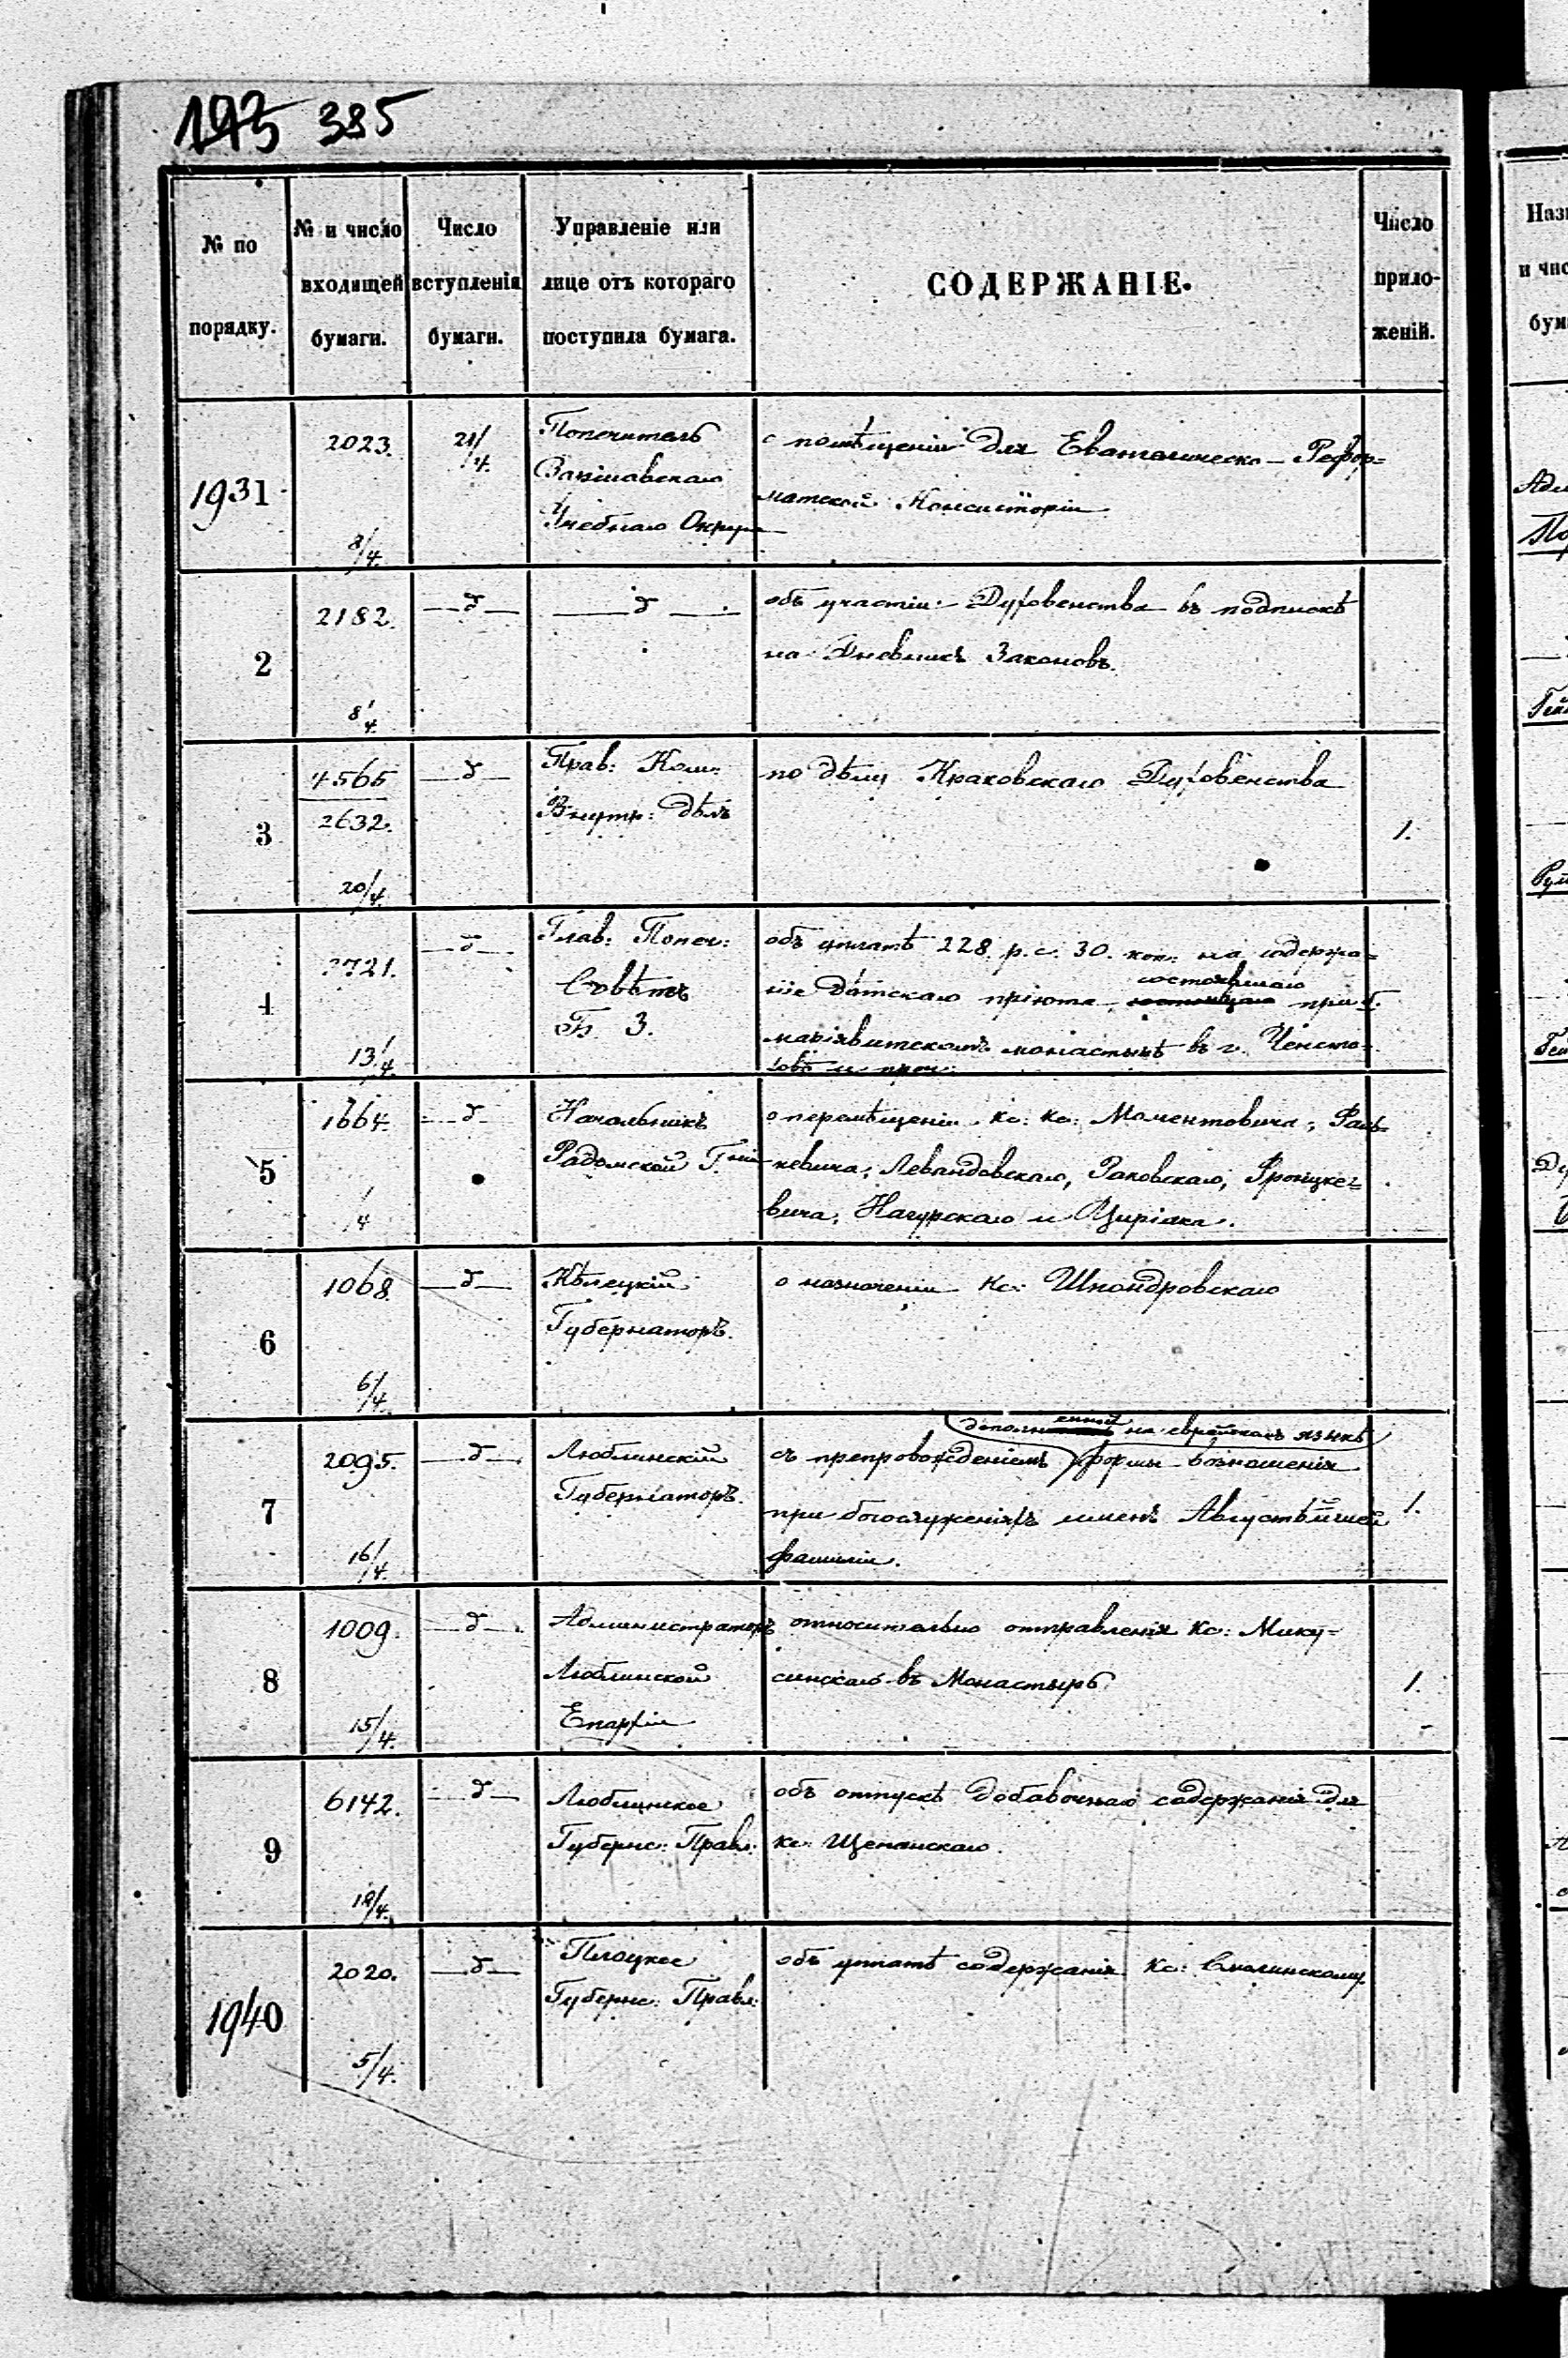 193 385
№ по порядку.
№ и число входящей бумаги.
Число вступленія бумаги.
Управленіе или лице отъ котораго поступила бумага.
СОДЕРЖАНІЕ.
Число приложеній.
1931
2023.
8/4.
21/4.
Попечитель
Варшавскаго
Учебнаго Округа
о помѣщеніи для Евангелическо-Рефор=
матской Консисторіи
2
2182.
8/4.
объ участіи Духовенства въ подпискѣ
на Дневникъ Законовъ.
3
4565
2632.
20/4.
Прав: Ком:
Внутр: Дѣлъ
по дѣлу Краковскаго Духовенства
1.
4
13/4.
Глав: Попеч:
Совѣтъ
Бл. З.
объ уплатѣ 228 р. с. 30. коп: на содержа=
ніе дѣтскаго пріюта,
состоявшаго
при б.
маріявитскомъ монастырѣ въ г. Ченсто=
ховѣ и проч:
5
1664.
/4
Начальникъ
Радомской Г.ніи
о перемѣщеніи кс: кс: Маментовича,
кевича, Левандовскаго, Раковскаго,
вича, Нагурскаго и Циріака.
6
1068.
6/4.
Кѣлецкій
Губернаторъ.
о назначеніи Кс: Шпондровскаго
7
2095.
16/4.
Люблинскій
Губернаторъ.
на еврейскомъ языкѣ
съ препровожденіемъ формы возношенія
при богослуженіяхъ именъ Августѣйшей
фамиліи.
1.
8
1009.
15/4.
Администраторъ
Люблинской
Епархіи
относительно отправленія Кс: Мику=
синскаго въ Монастырь
1.
9
6142.
18/4.
Люблинское
Губернс: Правл:
объ отпускѣ добавочнаго содержанія для
кс: Щепанскаго.
1940
2020.
5/4.
Плоцкое
Губернс: Правл:
объ уплатѣ содержанія Кс: Смолинскому